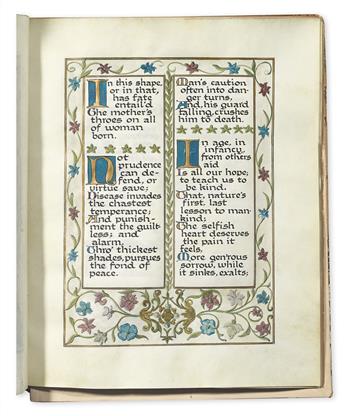 In this shape,
or in that,
has fate
entail'd
The mother's
throes on all
of woman
born.
Not
prudence
can de-
fend, or
virtue save;
Disease invades
the chastest
temperance;
And punish-
ment the guilt-
less; and
alarm,
Thro' thickest
shades, pursues
the fond of
peace.
Man's caution
often into dan-
ger turns,
And, his guard
falling, crushes
him to death.
In age, in
infancy,
from others
aid
Is all our hope;
to teach us to
be kind.
That, nature's
first, last
lesson to man-
kind;
The selfish
heart deserves
the pain it
feels,
More gen'rous
sorrow, while
it sinks, exalts;